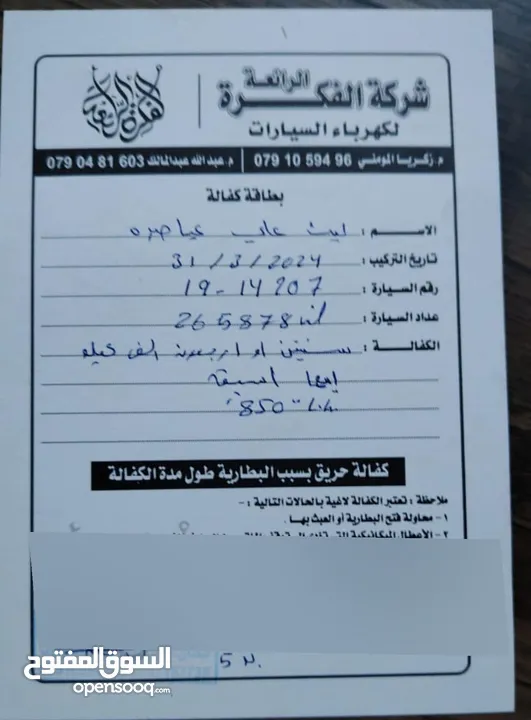 شركة الفكرة الرائعة
لكهرباء السيارات
م.زكريا المومني 96 594 10 079 | م.عبدالله عبدالمالك 603 81 04 079
بطاقة كفالة
الاسم : ليث علي عياصره
تاريخ التركيب : 31/3/2024
رقم السيارة : 19-14207
عداد السيارة : 265878
الكفالة : سنتين او اربعون الف كيلو
ايهما اسبق
850
كفالة حريق بسبب البطارية طول مدة الكفالة
ملاحظة : تعتبر الكفالة لاغية بالحالات التالية : -
١- محاولة فتح البطارية أو العبث بها .
٢- الأعطال الميكانيكية
السوق المفتوح
opensooq.com